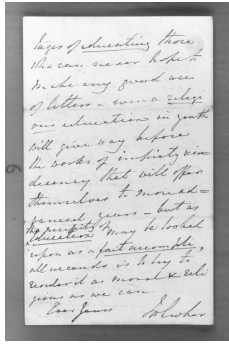 tages of educating those
who can never hope to
make any good use
of letters - even a religi
ous education in youth
will give way before
the works of impiety & in
decency that will offer
themselves to more ad=
vanced years - but as
the necessity of
Education may be looked
upon as a fait accompli,
all we can do is to try to
render it as moral & reli
gious as we can.
Ever Yours
6